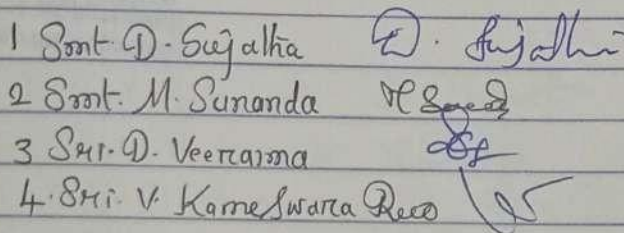 1 Smt. D. Sujatha D. Sujatha
2 Smt. M. Sunanda
3 Sri. D. Veeranna
4. Sri. V. Kameswara Rao